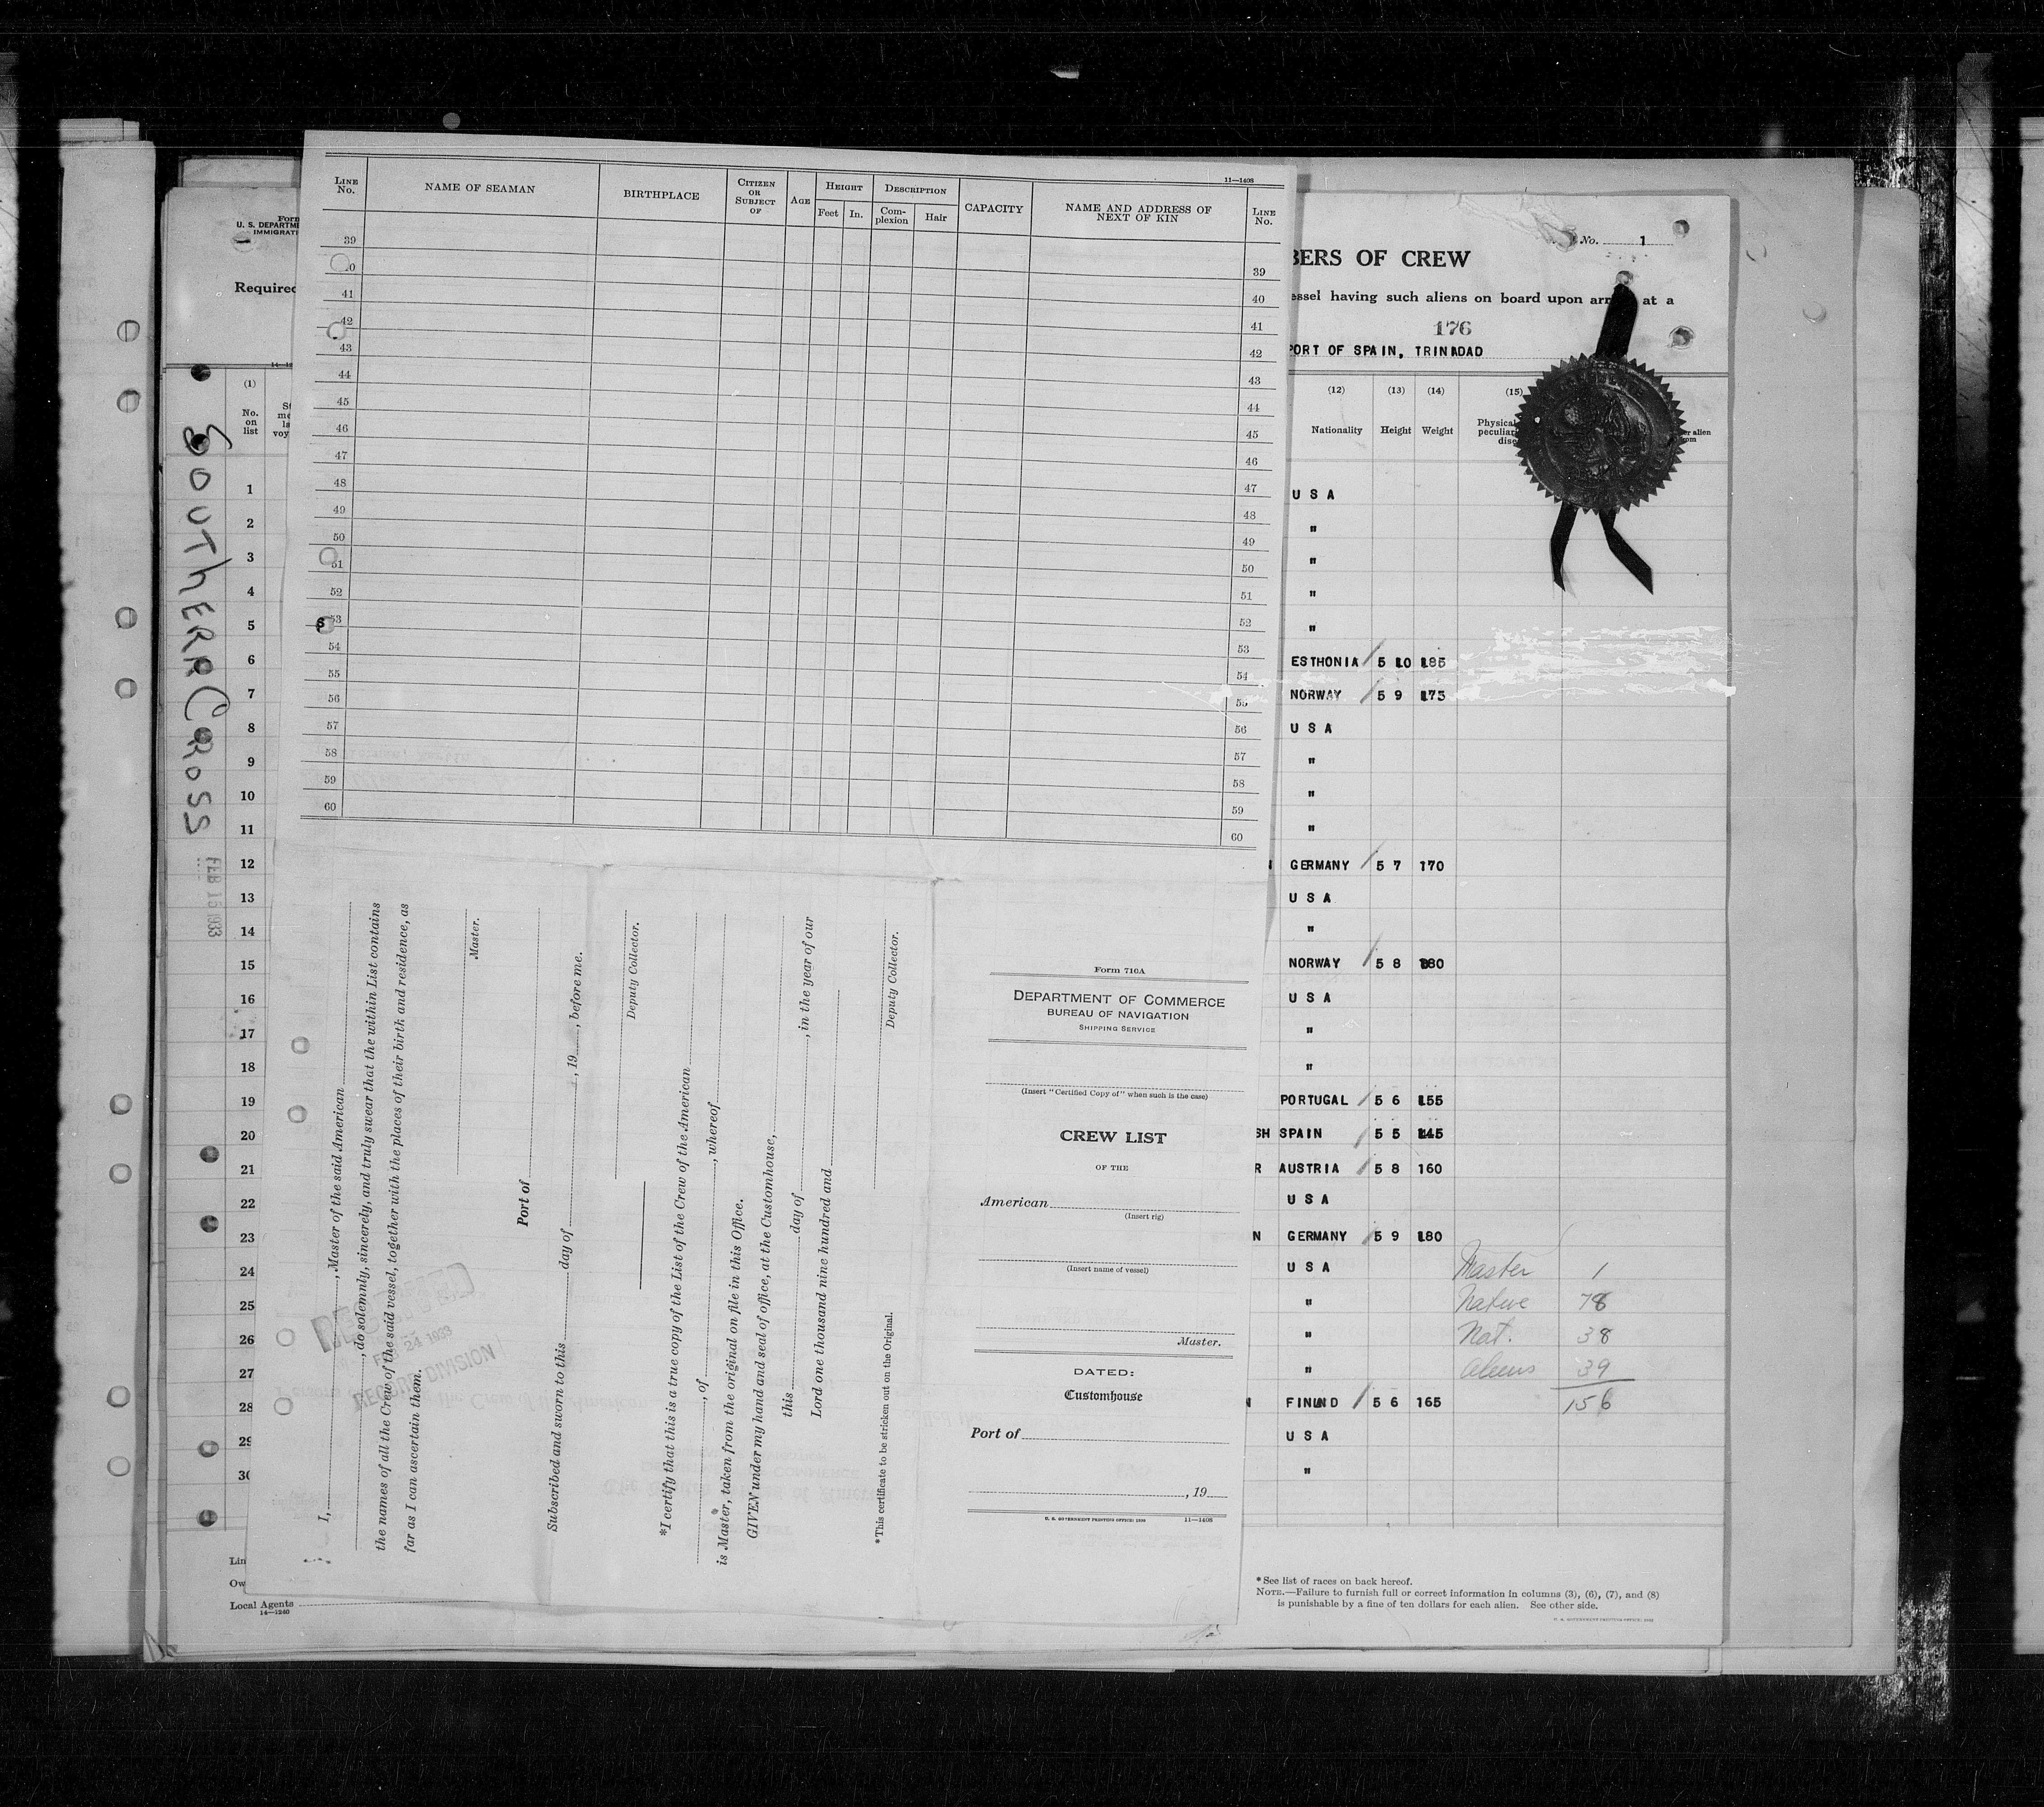 11—1408
LINE No. NAME OF SEAMAN BIRTHPLACE CITIZEN OR SUBJECT OF AGE HEIGHT Feet In. DESCRIPTION Complexion Hair CAPACITY NAME AND ADDRESS OF NEXT OF KIN LINE No.
39 39
40
41 40
42 41
43 42
44 43
45 44
46 45
47 46
48 47
49 48
50 49
51 50
52 51
53 52
54 53
55 54
56 55
57 56
58 57
59 58
60 59
60
I, , Master of the said American
, do solemnly, sincerely, and truly swear that the within List contains
the names of all the Crew of the said vessel, together with the places of their birth and residence, as
far as I can ascertain them.
Master.
Port of
Subscribed and sworn to this day of , 19 , before me.
Deputy Collector.
*I certify that this is a true copy of the List of the Crew of the American
, of , whereof
is Master, taken from the original on file in this Office.
GIVEN under my hand and seal of office, at the Customhouse,
this day of , in the year of our
Lord one thousand nine hundred and
Deputy Collector.
*This certificate to be stricken out on the Original.
FEB 24 1933
RECORD DIVISION
Form 710A
DEPARTMENT OF COMMERCE
BUREAU OF NAVIGATION
SHIPPING SERVICE
(Insert "Certified Copy of" when such is the case)
CREW LIST
OF THE
American
(Insert rig)
(Insert name of vessel)
Master.
DATED:
Customhouse
Port of
, 19
U. S. GOVERNMENT PRINTING OFFICE: 11—1408
Form
U. S. DEPARTME
IMMIGRATI
Required
SOUTHERN CROSS
FEB 15 1933
(1)
No. on list
1
2
3
4
5
6
7
8
9
10
11
12
13
14
15
16
17
18
19
20
21
22
23
24
25
26
27
28
29
30
Lin
Ow
Local Agents
14—1240
No. 1
BERS OF CREW
essel having such aliens on board upon arr at a
176
PORT OF SPAIN, TRINIDAD
(12) (13) (14) (15)
Nationality Height Weight Physical peculiar dise er alien
U S A
"
"
"
"
ESTHONIA 5 10 185
NORWAY 5 9 175
U S A
"
"
"
GERMANY 5 7 170
U S A
"
NORWAY 5 8 180
U S A
"
"
PORTUGAL 5 6 155
SH SPAIN 5 5 145
R AUSTRIA 5 8 160
U S A
N GERMANY 5 9 180
U S A Master 1
" Native 78
" Nat. 38
" Aliens 39
N FINLND 5 6 165 156
U S A
"
*See list of races on back hereof.
NOTE.—Failure to furnish full or correct information in columns (3), (6), (7), and (8)
is punishable by a fine of ten dollars for each alien. See other side.